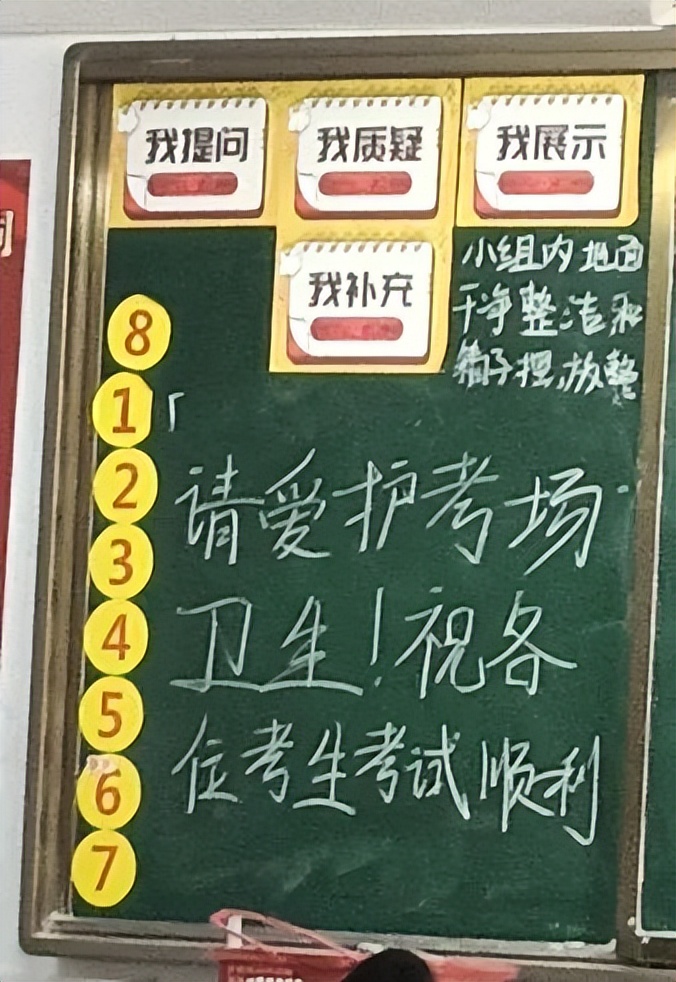 我提问 我质疑 我展示
我补充
小组内地面
干净整洁和
箱子摆放整
8
1「
2
3
4
5
6
7
请爱护考场
卫生!祝各
位考生考试顺利